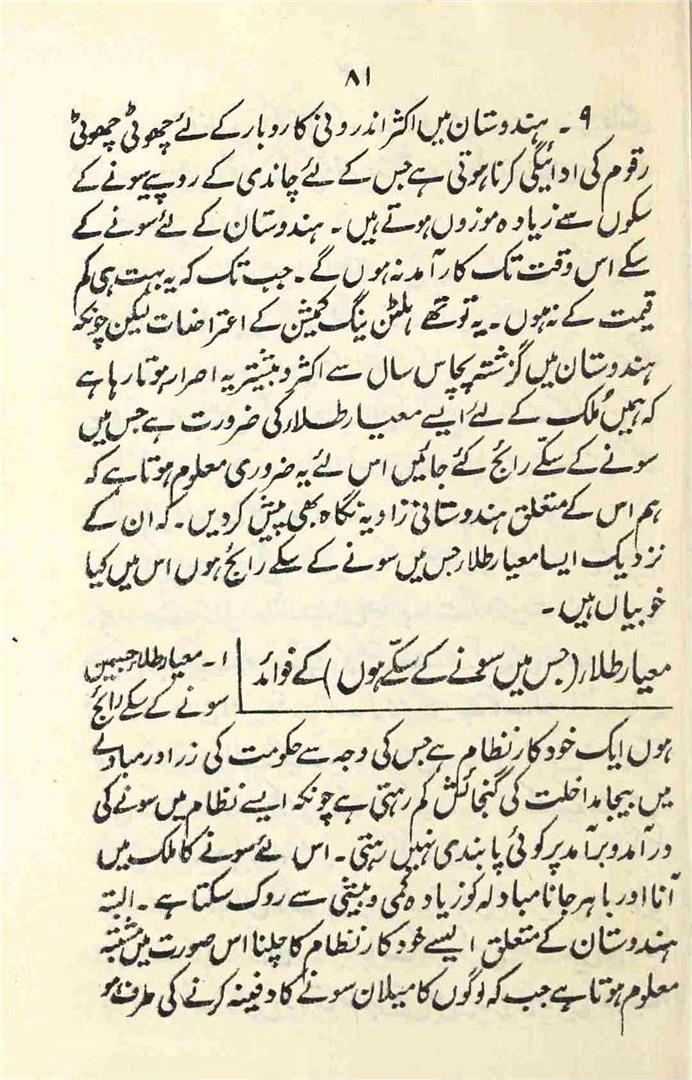 ۸۱
۹ ۔ ہندوستان میں اکثر اندرونی کاروبار کے لئے چھوٹی چھوٹی
رقوم کی ادائیگی کرنا ہوتی ہے جس کے لئے چاندی کے روپے سونے کے
سکوں سے زیادہ موزوں ہوتے ہیں ۔ ہندوستان کے لئے سونے کے
سکے اس وقت تک کار آمد نہ ہوں گے ۔ جب تک کہ یہ بہت ہی کم
قیمت کے نہ ہوں ۔ یہ تو تھے ہلٹن ینگ کمیشن کے اعتراضات لیکن چونکہ
ہندوستان میں گزشتہ پچاس سال سے اکثر و بیشتر یہ اصرار ہوتا رہا ہے
کہ ہمیں مُلک کے لئے ایسے معیار طلاء کی ضرورت ہے جس میں
سونے کے سکّے رائج کئے جائیں اس لئے یہ ضروری معلوم ہوتا ہے کہ
ہم اس کے متعلق ہندوستانی زاویہ نگاہ بھی پیش کر دیں ۔ کہ ان کے
نزدیک ایسا معیار طلاء جس میں سونے کے سکے رائج ہوں اس میں کیا
خوبیاں ہیں ۔
معیار طلاء (جس میں سونے کے سکّے ہوں) کے فوائد
۱ ۔ معیار طلاء جسمیں
سونے کے سکے رائج
ہوں ایک خود کار نظام ہے جس کی وجہ سے حکومت کی زر اور مبادلے
میں بیجا مداخلت کی گنجائش کم رہتی ہے چونکہ ایسے نظام میں سونے کی
درآمد و برآمد پر کوئی پابندی نہیں رہتی ۔ اس لئے سونے کا ملک میں
آنا اور باہر جانا مبادلہ کو زیادہ کمی و بیشی سے روک سکتا ہے ۔ البتہ
ہندوستان کے متعلق ایسے خود کار نظام کا چلنا اس صورت میں مشتبہ
معلوم ہوتا ہے جب کہ لوگوں کا میلان سونے کا دفینہ کرنے کی طرف ہو